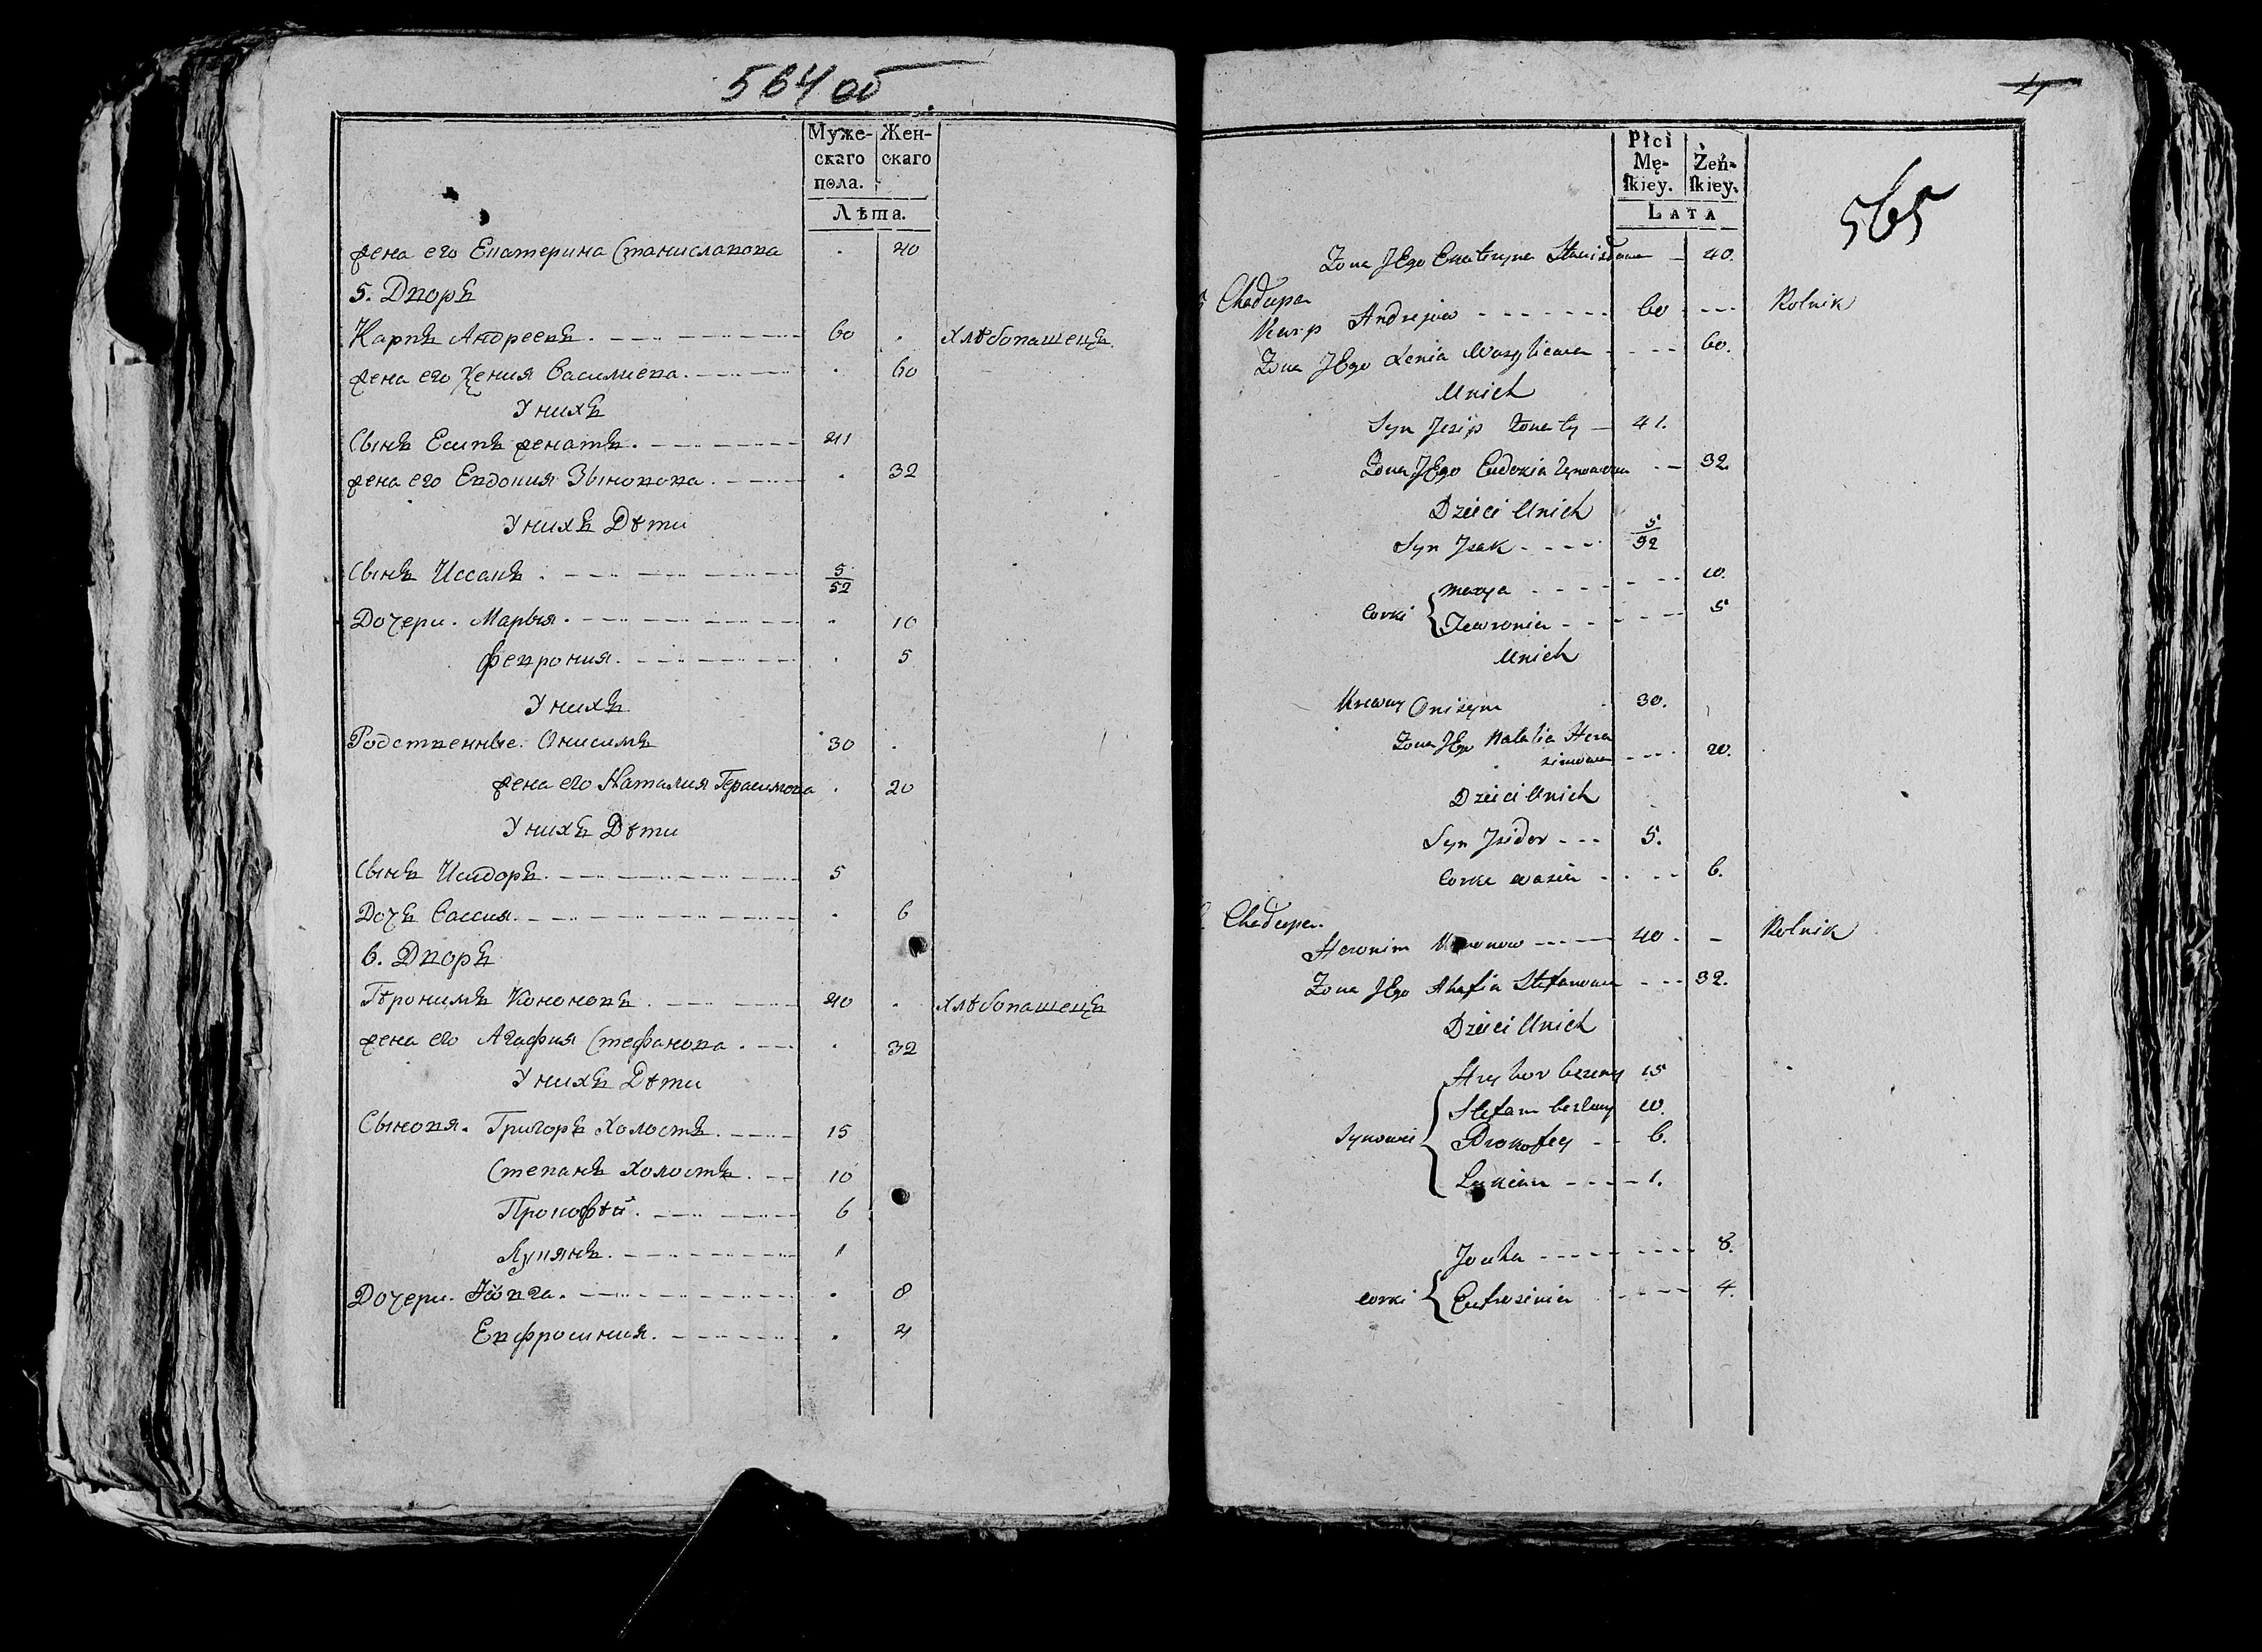 564 об
Муже-
скаго
пола.
Жен-
скаго
Лѣта.
жена его Екатерина Станиславова . 40
5. Дворъ
Карпъ Андреевъ. 60 . Хлѣбопашецъ.
жена его Ксения Василиева. . 60
У нихъ
Сынъ Есипъ женатъ. 41
жена его Евдокия Зыновова. . 32
У нихъ Дѣти
Сынъ Иссакъ. 5/52
Дочери. Марья. . 10
Феврония. . 5
У нихъ
Родственные. Онисимъ 30 .
жена его Наталия Герасимова . 20
У нихъ Дѣти
Сынъ Исидоръ. 5
Дочь Вассия. . 6
6. Дворъ
Гѣронимъ Кононовъ. 40 . Хлѣбопашецъ
жена его Агафия Стефанова. . 32
У нихъ Дѣти
Сыновя. Григоръ Холостъ. 15
Степанъ Холостъ. 10
Прокофѣй. 6
Лукянъ. 1
Дочери. Ювга. . 8
Евфросиния. . 4
Płci
Mę-
ſkiey.
Żeń-
ſkiey.
LATA
565
Zona JEgo Ekateryna Stanisławowa 40.
5 Chałupa
Karp Andrejew 60 Rolnik
Zona JEgo Xenia Wasyliewa 60.
Unich
Syn Jesip Zonaty 41.
Zona JEgo Eudokia 32.
Dzieci Unich
Syn Jsak 5/52
Corki { Marya 10.
Fewronia 5
Unich
Krewny Onizym 30.
Zona JEgo Natalia Hera
simowa 20.
Dzieci Unich
Syn Jsidor 5.
Corka Wasia 6.
Chałupa.
Heronim Kononow 40. Rolnik
Zona JEgo Ahafia Stefanowa 32.
Dzieci Unich
Hryhor bezżeny 15
Synowie { Stefan bezżeny 10.
Prokofey 6.
Lukian 1.
Jowha 8.
Corki { Eufrosinia 4.